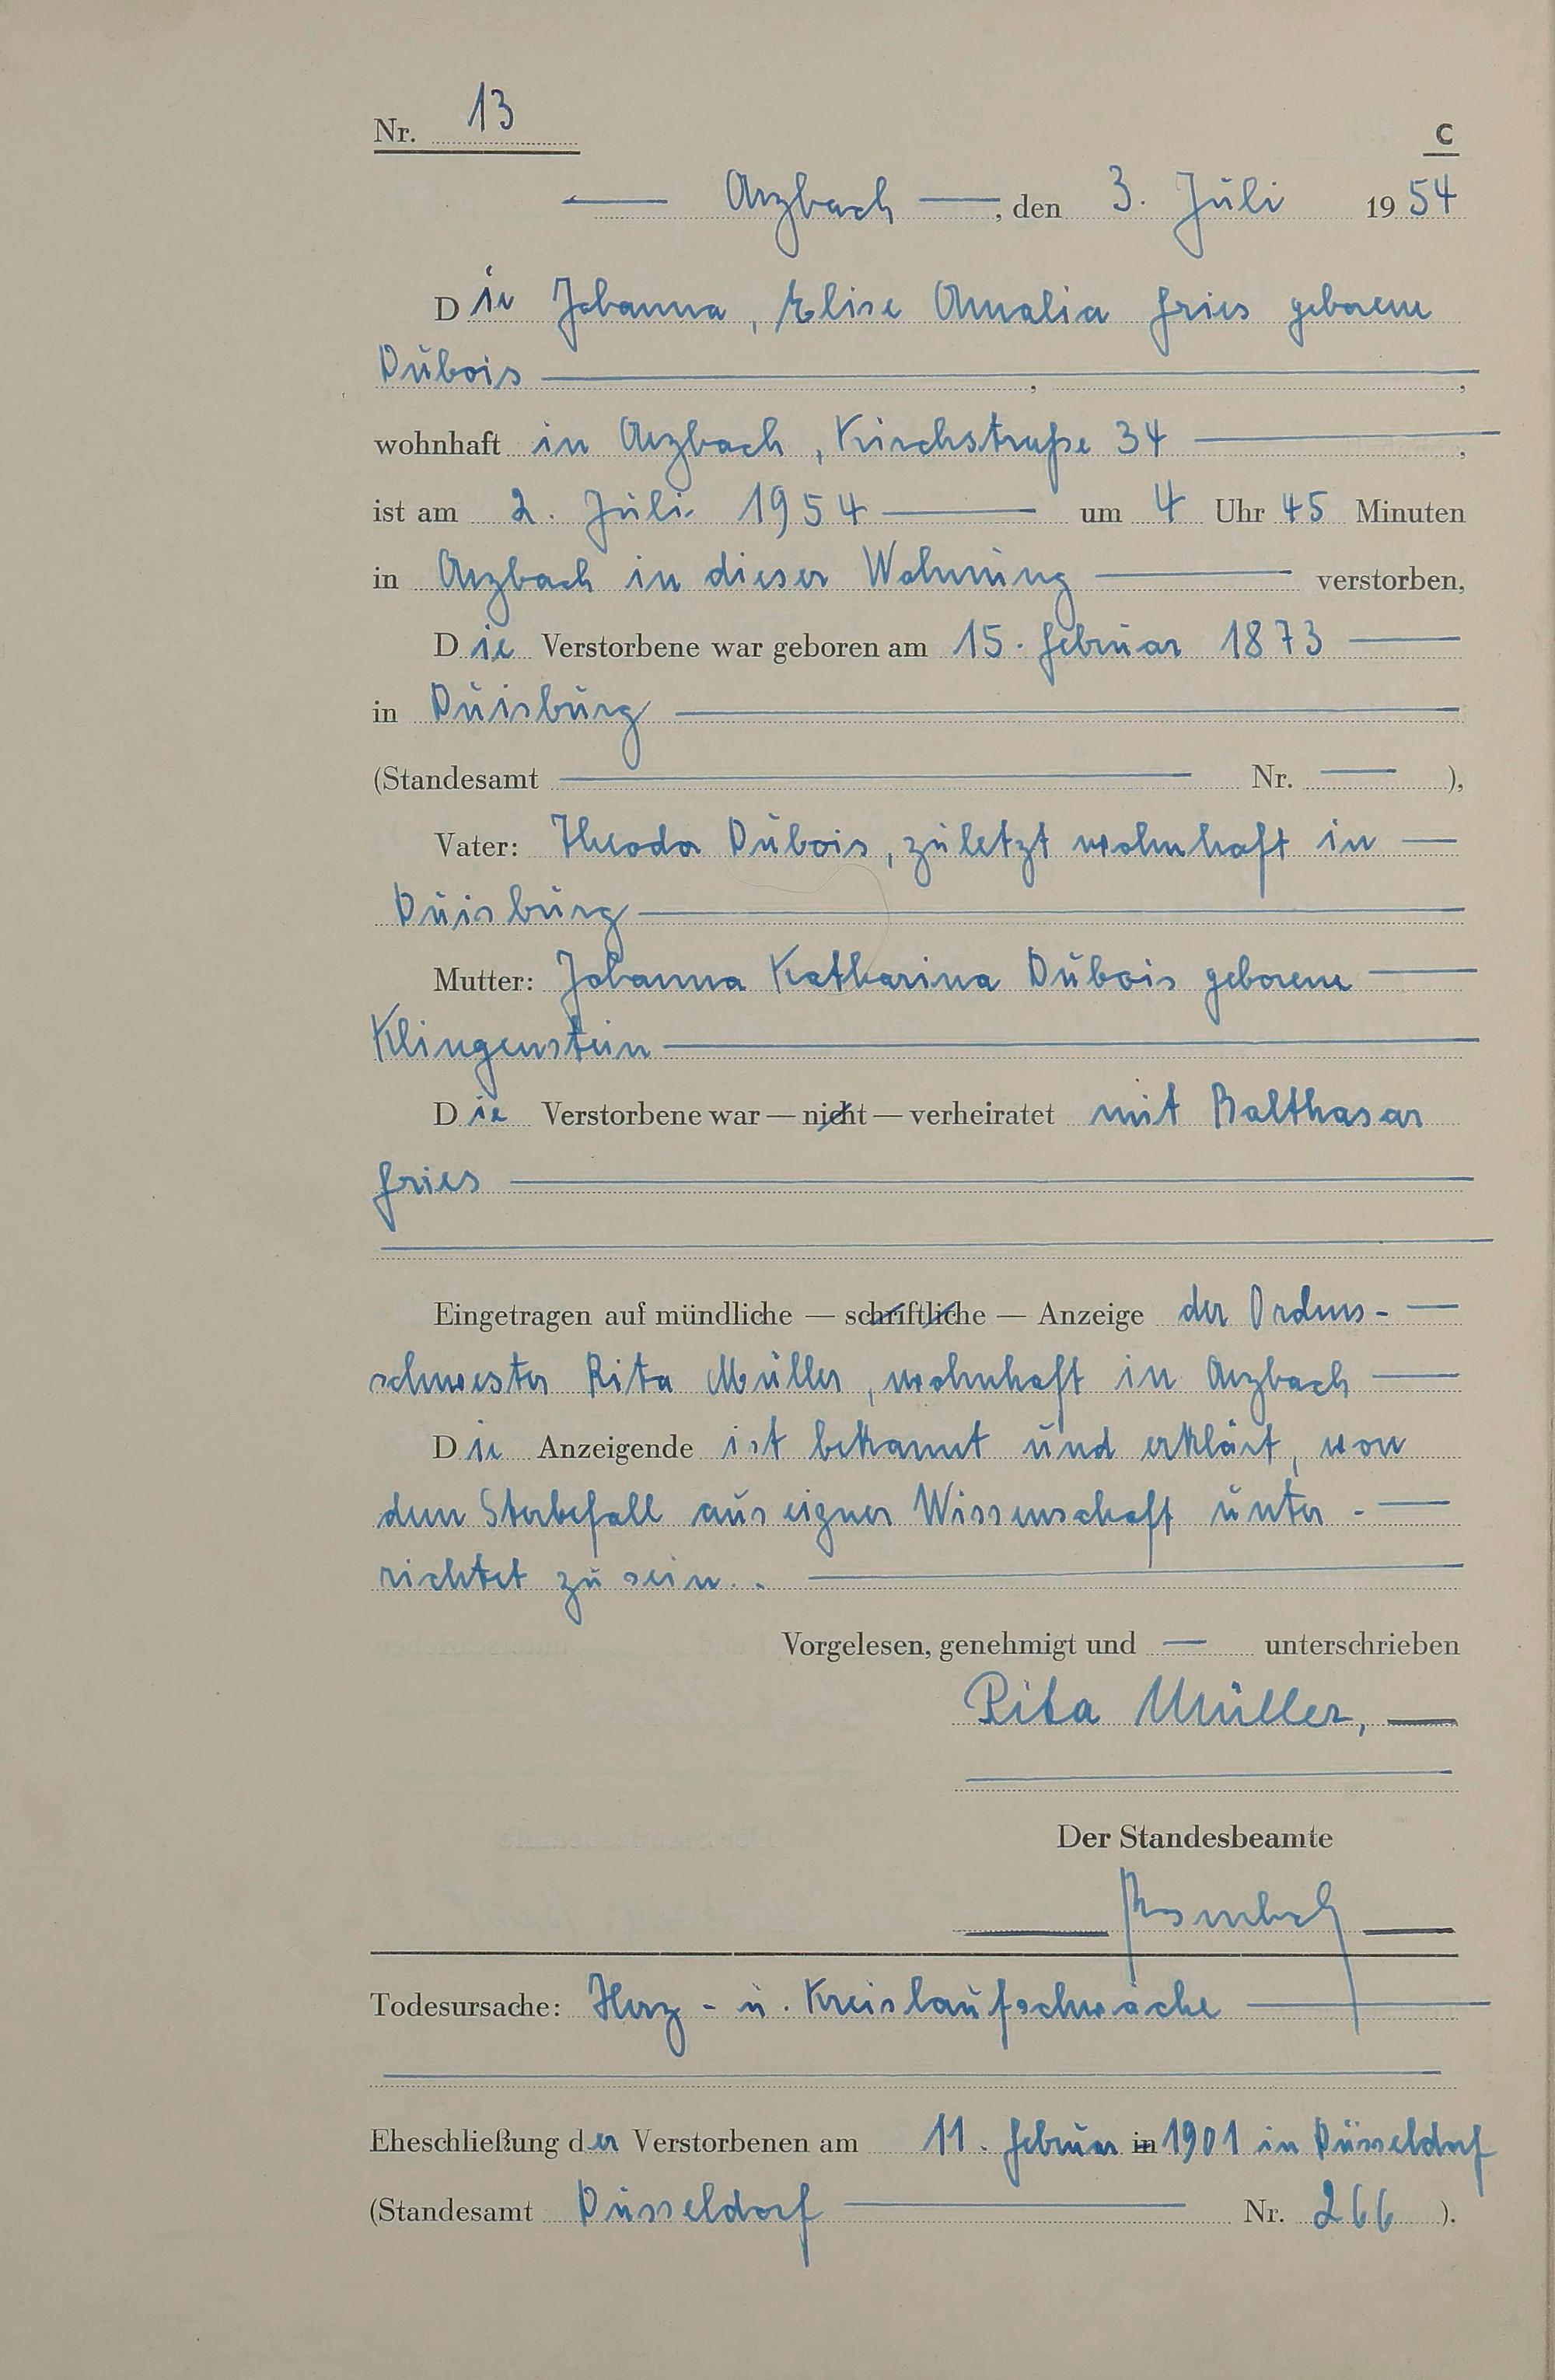 Nr. 13
C
Arzbach, den 3. Juli 1954
Die Johanna, Elise Amalia Fries geborene
Dubois
wohnhaft in Arzbach, Kirchstraße 34
ist am 2. Juli 1954 um 4 Uhr 45 Minuten
in Arzbach in dieser Wohnung verstorben,
Die Verstorbene war geboren am 15. Februar 1873
in Duisburg
(Standesamt — Nr. — ),
Vater: Theodor Dubois, zuletzt wohnhaft in
Duisburg
Mutter: Johanna Katharina Dubois geborene
Klingenstein
Die Verstorbene war — nicht — verheiratet mit Balthasar
Fries
Eingetragen auf mündliche — schriftliche — Anzeige der Ordens-
schwester Rita Müller, wohnhaft in Arzbach
Die Anzeigende ist bekannt und erklärt, von
dem Sterbefall aus eigner Wissenschaft unter-
richtet zu sein.
Vorgelesen, genehmigt und — unterschrieben
Rita Müller,
Der Standesbeamte
Todesursache: Herz- u. Kreislaufschwäche
Eheschließung der Verstorbenen am 11. Februar in 1901 in Düsseldorf
(Standesamt Düsseldorf Nr. 266 ).